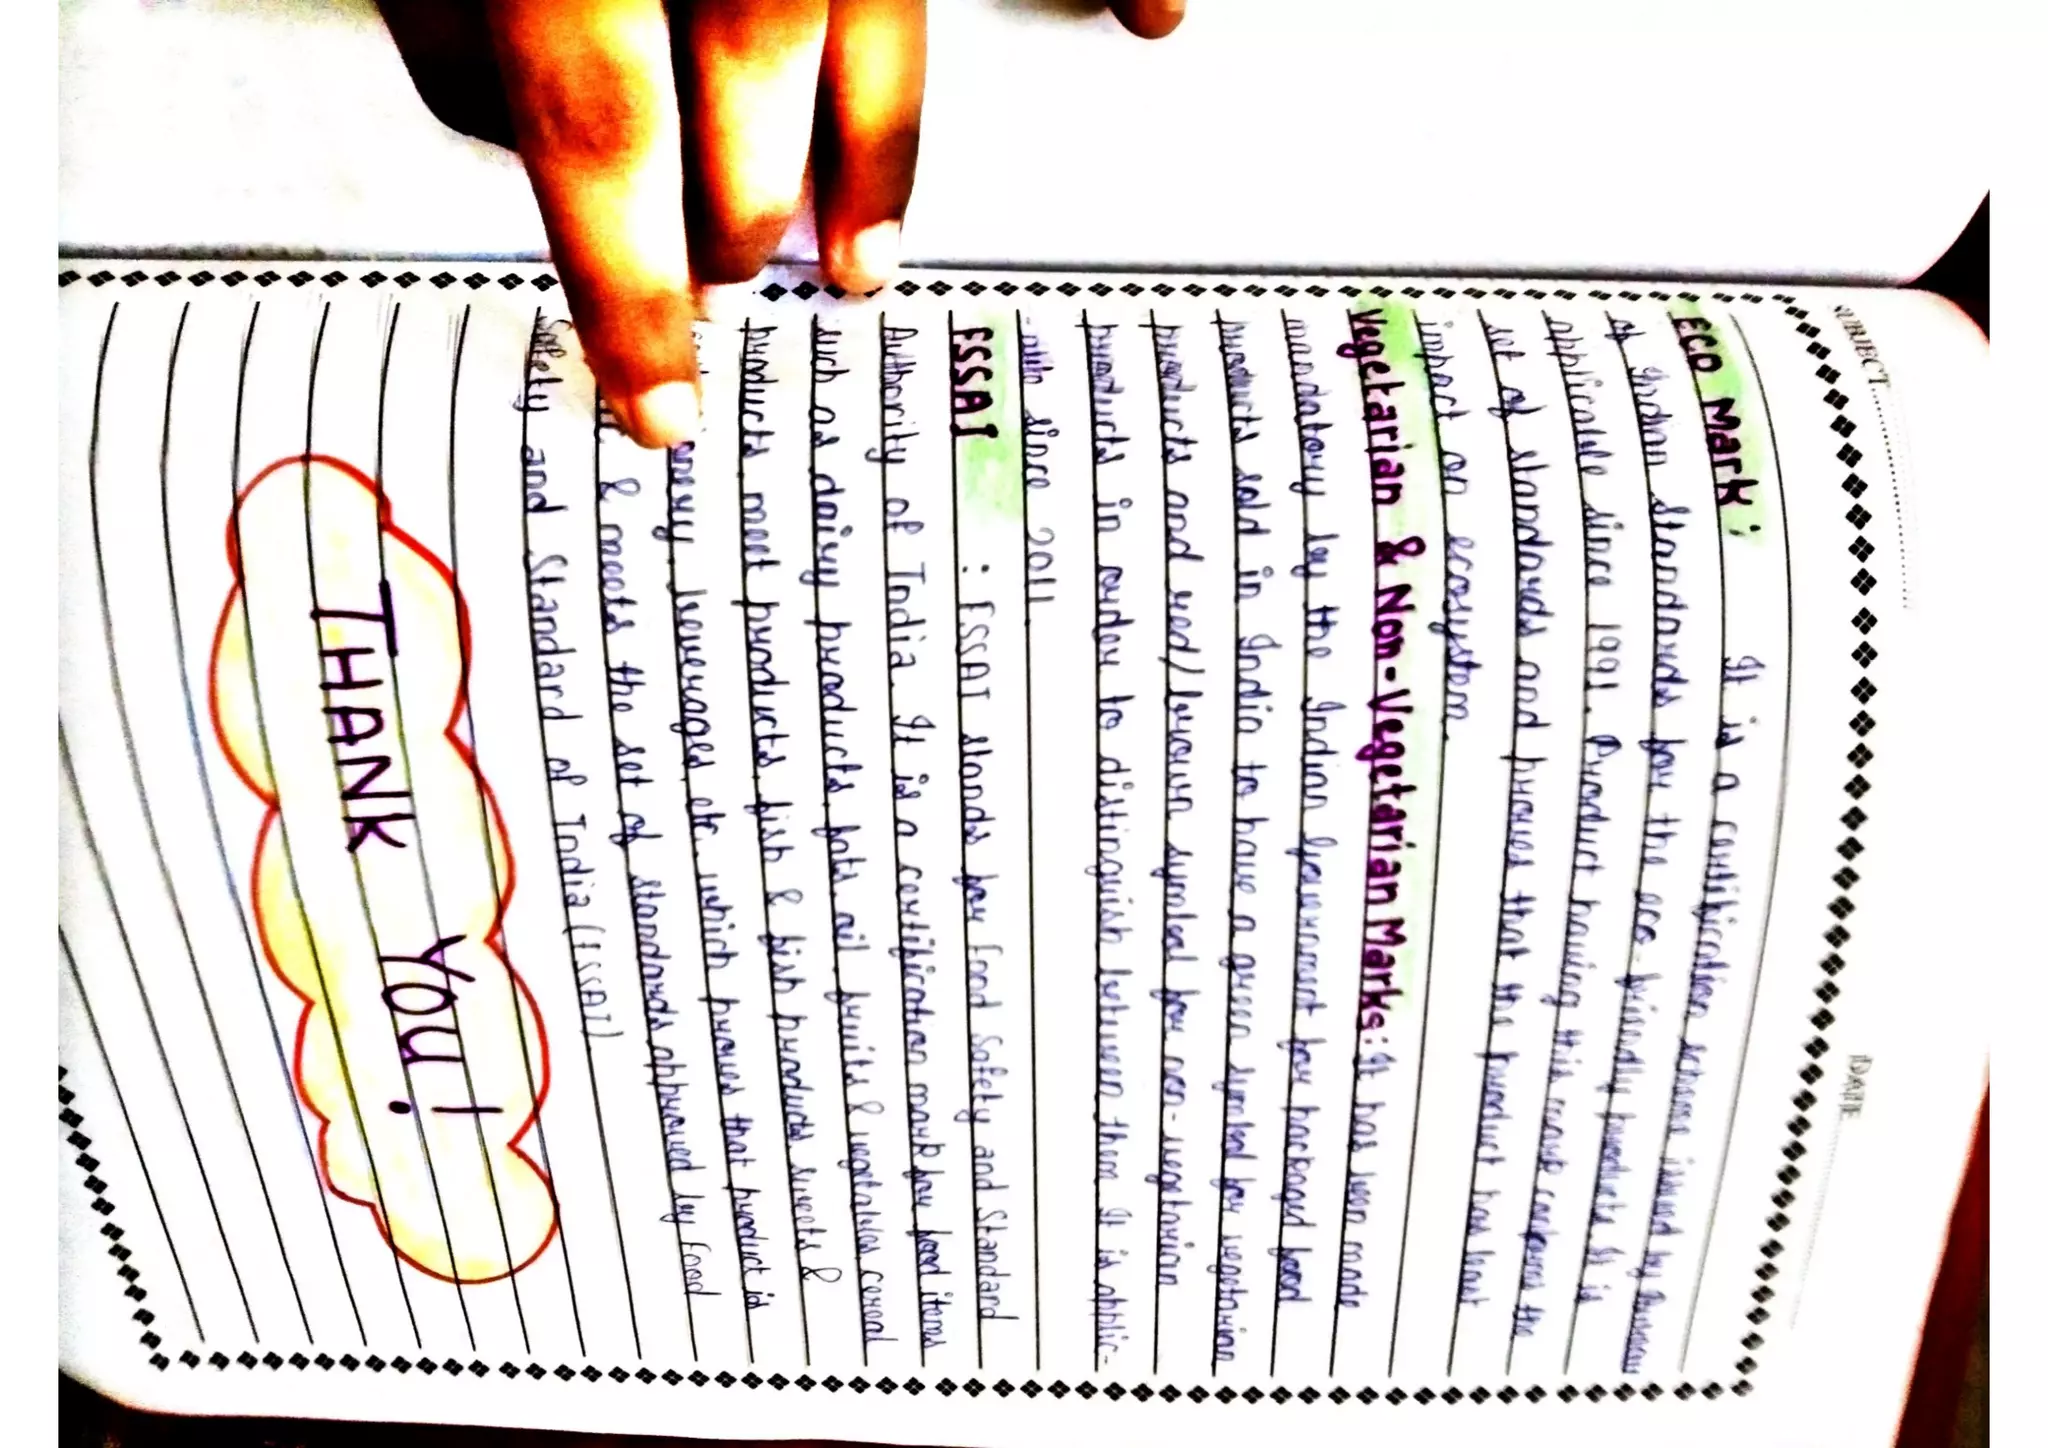 SUBJECT
DATE
ECO Mark : It is a certification scheme issued by Bureau
of Indian Standards for the eco-friendly products. It is
applicable since 1991. Product having this mark conforms the
set of standards and proves that the product has least
impact on ecosystem.
Vegetarian & Non-Vegetarian Marks: It has been made
mandatory by the Indian Government for packaged food
products sold in India to have a green symbol for vegetarian
products and red/brown symbol for non-vegetarian
products in order to distinguish between them. It is applic-
-able since 2011.
FSSAI : FSSAI stands for Food Safety and Standard
Authority of India. It is a certification mark for food items
such as dairy products, fats, oil, fruits & vegetables, cereal
products, meat products, fish & fish products, sweets &
beverages, etc. which proves that product is
& meets the set of standards approved by Food
Safety and Standard of India (FSSAI)
THANK YOU!